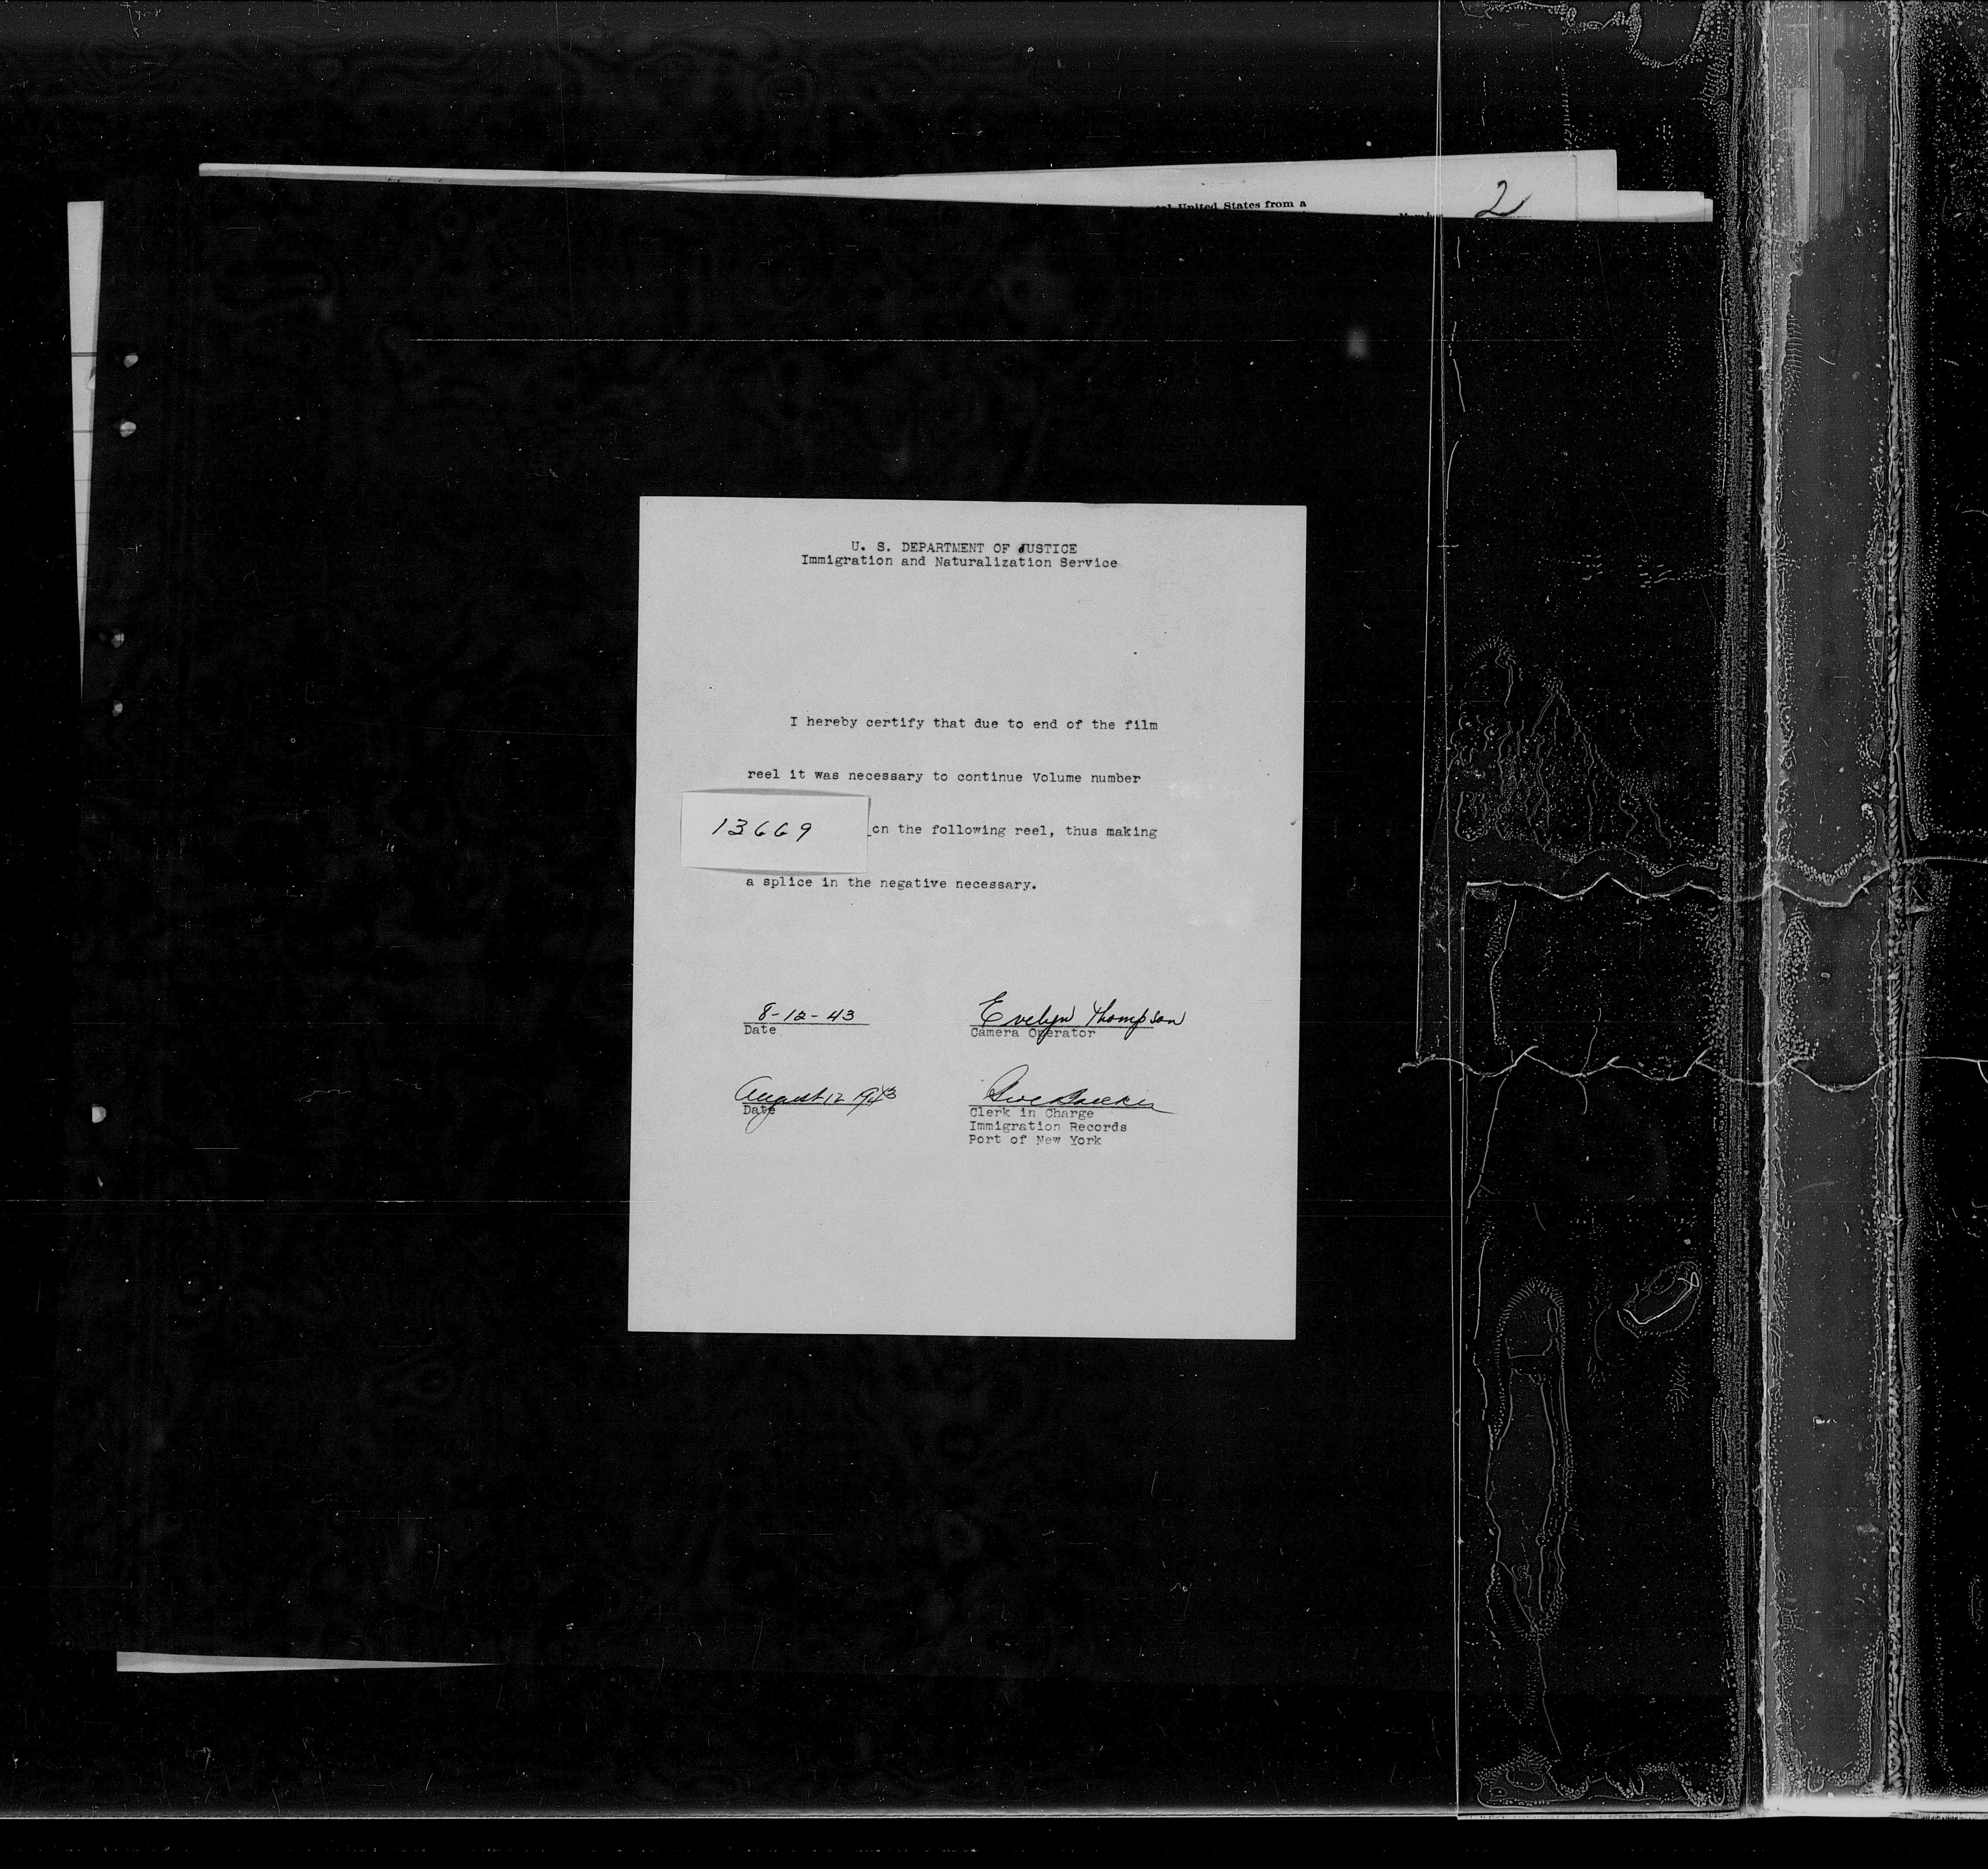 United States from a
2
U. S. DEPARTMENT OF JUSTICE
Immigration and Naturalization Service
I hereby certify that due to end of the film
reel it was necessary to continue Volume number
13669 on the following reel, thus making
a splice in the negative necessary.
8-12-43 Evelyn Thompson
Date Camera Operator
August 12 1943
Date Clerk in Charge
Immigration Records
Port of New York